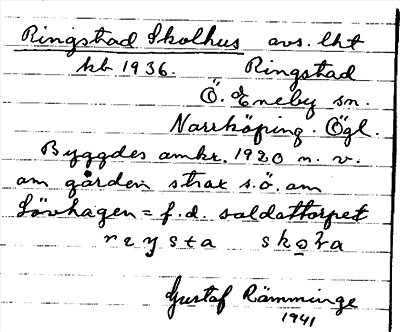 Ringstad Skolhus avs. lht
kb 1936. Ringstad
Ö. Eneby sn.
Narrköping. Ögl.
Byggdes amkr. 1920 n. v.
am gården strax s.ö. am
Lövhagen = f.d. soldattorpet
skola
Gustaf Rämminge
1941